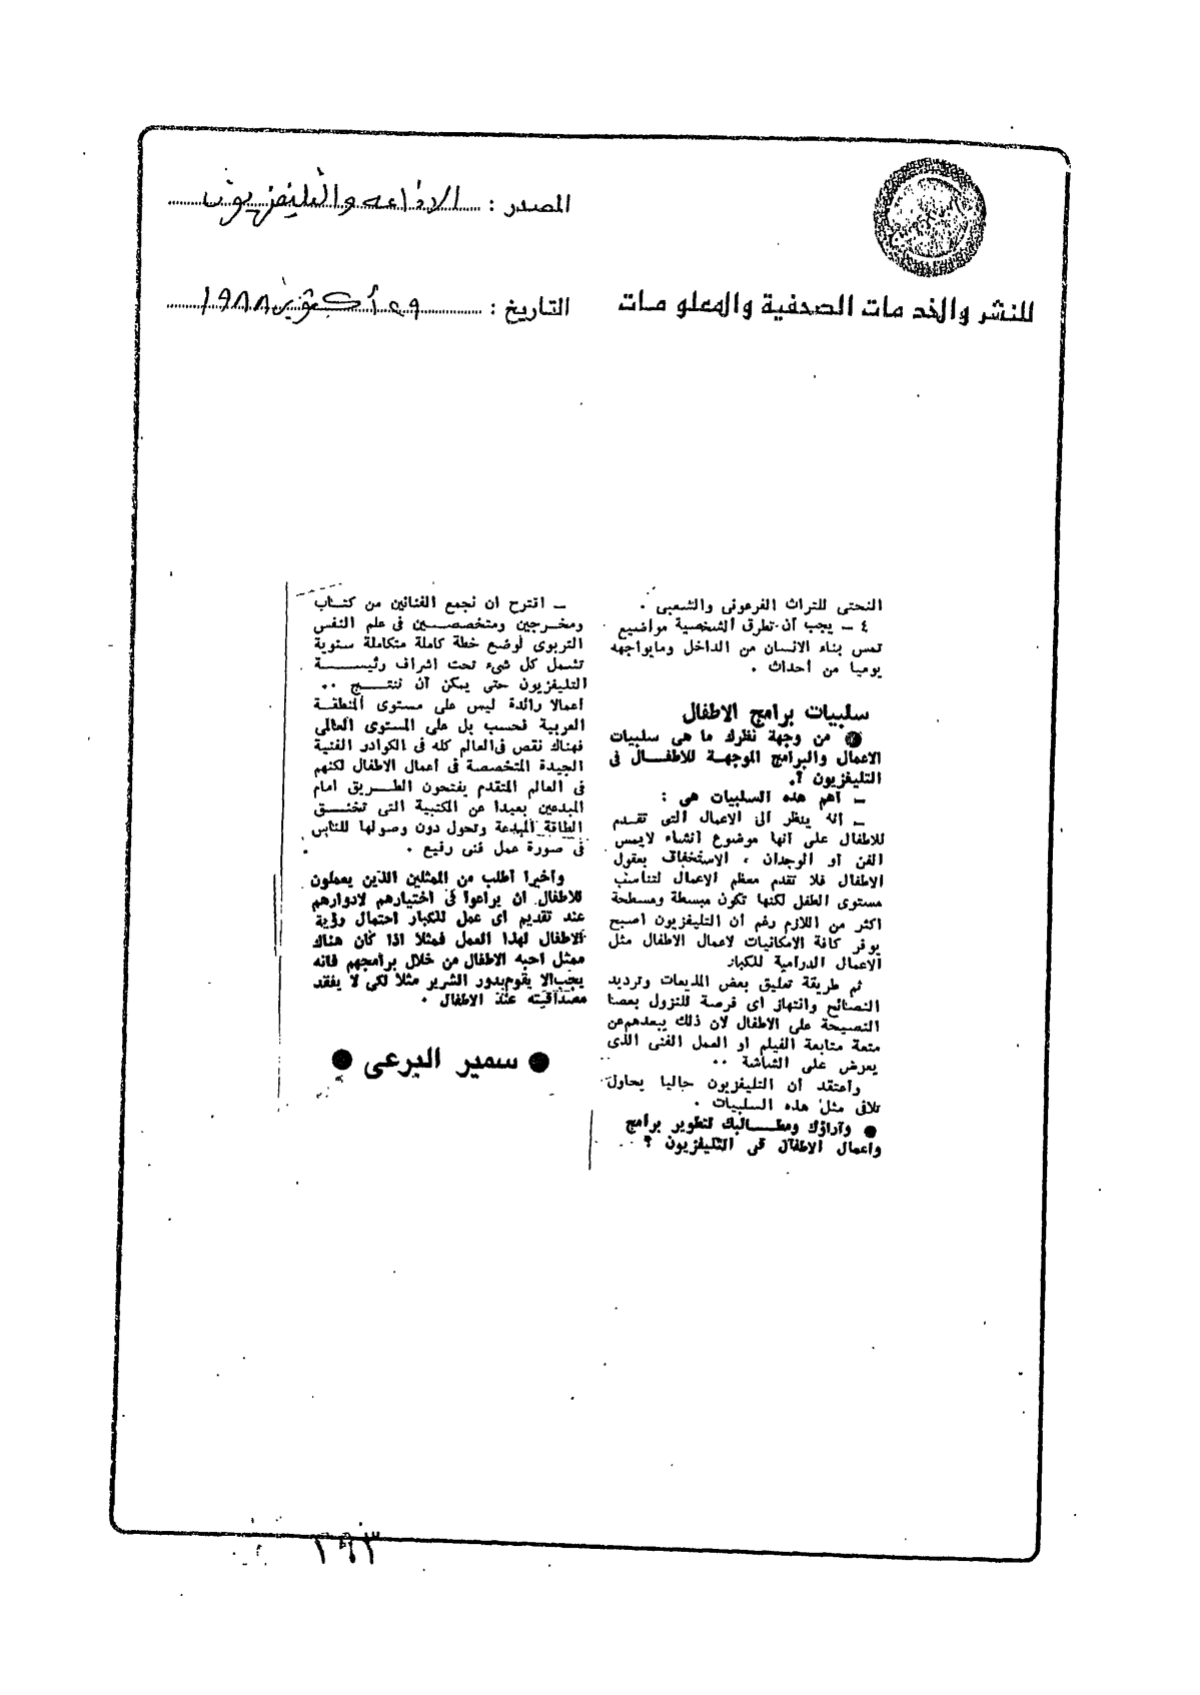 المصدر : الاذاعه والتليفزيون
للنشر والخد مات الصحفية والمعلو مات
التاريخ : ٢٩ أكتوبر ١٩٨٨
النحتى للتراث الفرعونى والشعبى .
٤ – يجب أن تطرق الشخصية مواضيع
تمس بناء الانسان من الداخل ومايواجهه
يوميا من أحداث .
سلبيات برامج الاطفال
● من وجهة نظرك ما هى سلبيات
الاعمال والبرامج الموجهة للاطفال فى
التليفزيون ؟.
– أهم هذه السلبيات هى :
– انه ينظر الى الاعمال التى تقدم
للاطفال على انها موضوع انشاء لايمس
الفن أو الوجدان ، الاستخفاف بعقول
الاطفال فلا تقدم معظم الاعمال لتناسب
مستوى الطفل لكنها تكون مبسطة ومسطحة
اكثر من اللازم رغم أن التليفزيون اصبح
يوفر كافة الامكانيات لاعمال الاطفال مثل
الاعمال الدرامية للكبار
ثم طريقة تعليق بعض المذيعات وترديد
النصائح وانتهاز اى فرصة للنزول بعصا
النصيحة على الاطفال لان ذلك يبعدهم عن
متعة متابعة الفيلم او العمل الفنى الذى
يعرض على الشاشة ..
وأعتقد أن التليفزيون حاليا يحاول
تلافى مثل هذه السلبيات .
● وآراؤك ومطالبك لتطوير برامج
وأعمال الاطفال فى التليفزيون ؟
– اقترح ان نجمع الفنانين من كتاب
ومخرجين ومتخصصين فى علم النفس
التربوى لوضع خطة كاملة متكاملة سنوية
تشمل كل شىء تحت اشراف رئيسة
التليفزيون حتى يمكن أن ننتج ..
أعمالا رائدة ليس على مستوى المنطقة
العربية فحسب بل على المستوى العالى
فهناك نقص فى العالم كله فى الكوادر الفنية
الجيدة المتخصصة فى أعمال الاطفال لكنهم
فى العالم المتقدم يفتحون الطريق أمام
المبدعين بعيدا عن المكتبية التى تخنق
الطاقة المبدعة وتحول دون وصولها للناس
فى صورة عمل فنى رفيع .
وأخيرا أطلب من الممثلين الذين يعملون
للاطفال ان يراعوا فى اختيارهم لادوارهم
عند تقديم اى عمل للكبار احتمال رؤية
الاطفال لهذا العمل فمثلا اذا كان هناك
ممثل احبه الاطفال من خلال برامجهم فانه
يجب الا يقوم بدور الشرير مثلا لكى لا يفقد
مصداقيته عند الاطفال .
● سمير البرعى ●